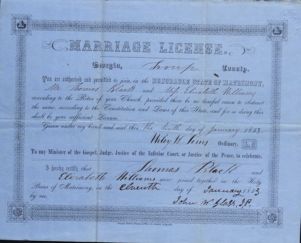 MARRIAGE LICENSE.
Georgia, Troup County.
You are authorized and permitted to join in the HONORABLE STATE OF MATRIMONY,
Mr. Thomas Black and Miss Elizabeth Williams
according to the Rites of your Church, provided there be no lawful cause to obstruct
the same, according to the Constitution and Laws of this State, and for so doing this
shall be your sufficient License.
Given under my hand and seal this the tenth day of January 1853
Ordinary, L. S.
To any Minister of the Gospel, Judge, Justice of the Inferior Court, or Justice of the Peace, to celebrate.
I hereby certify, that Thomas Black and
Elizabeth Williams were joined together in the Holy
Bonds of Matrimony, on the eleventh day of January 1853
by me, John W. J.P.